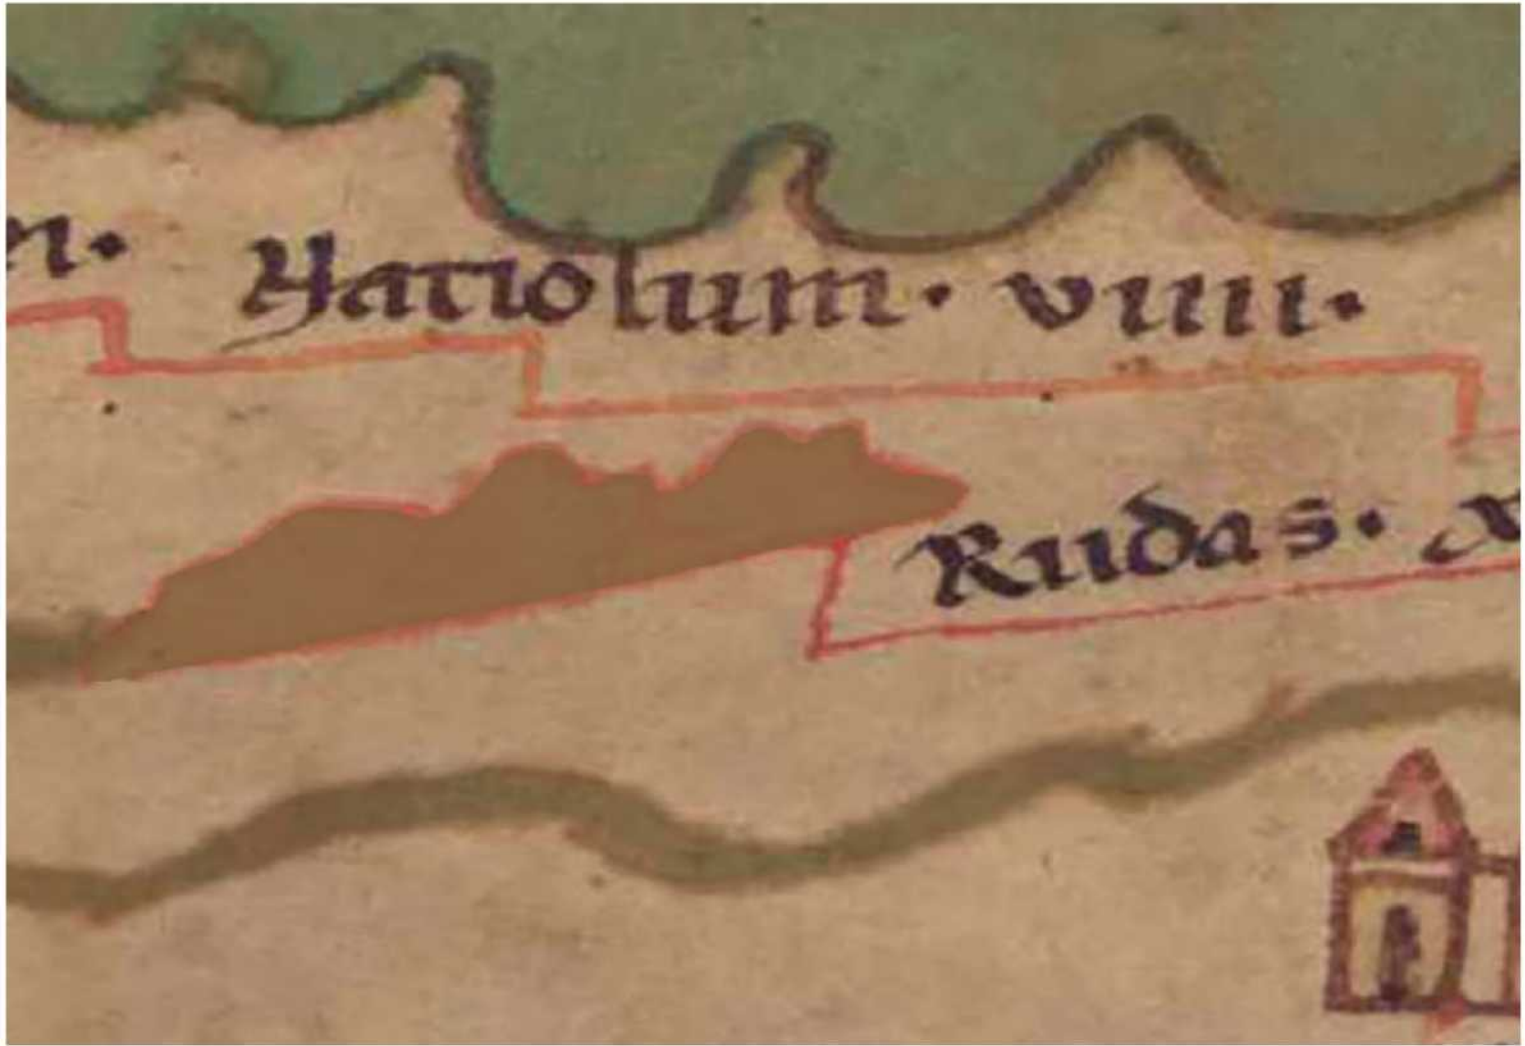 Natiolum · viiii ·
Rudas ·